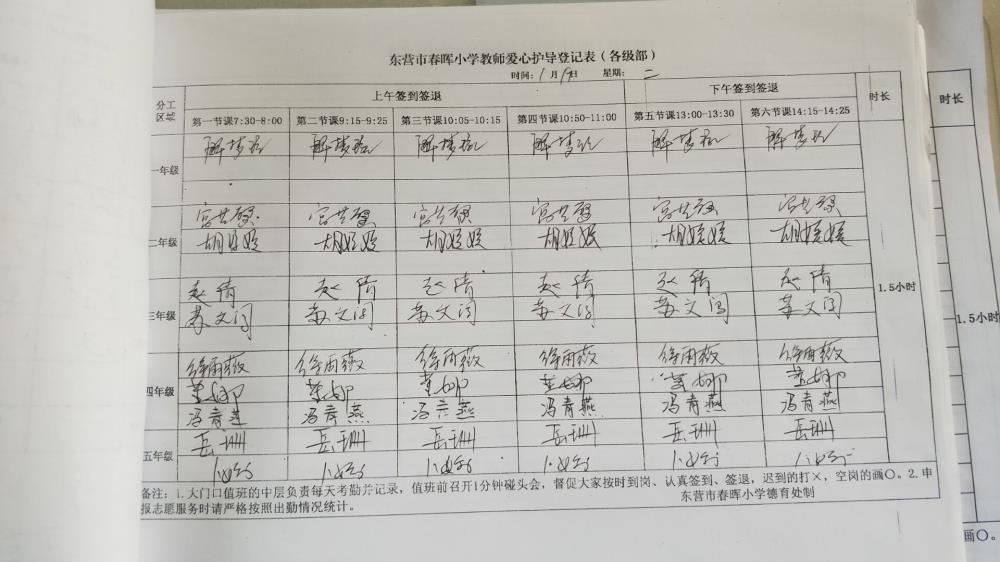 东营市春晖小学教师爱心护导登记表（各级部）
时间： 1 月 日 星期： 二
分工区域 上午签到签退 下午签到签退 时长
第一节课7:30-8:00 第二节课9:15-9:25 第三节课10:05-10:15 第四节课10:50-11:00 第五节课13:00-13:30 第六节课14:15-14:25
一年级
二年级
胡媛媛 胡媛媛 胡媛媛 胡媛媛 胡媛媛 胡媛媛
赵倩 赵倩 赵倩 赵倩 赵倩 赵倩
1.5小时
三年级 苏文闯 苏文闯 苏文闯 苏文闯 苏文闯 苏文闯
徐雨薇 徐雨薇 徐雨薇 徐雨薇 徐雨薇 徐雨薇
四年级 董娜 董娜 董娜 董娜 董娜 董娜
冯青燕 冯青燕 冯青燕 冯青燕 冯青燕 冯青燕
岳珊 岳珊 岳珊 岳珊 岳珊 岳珊
五年级
备注：1.大门口值班的中层负责每天考勤并记录，值班前召开1分钟碰头会，督促大家按时到岗、认真签到、签退，迟到的打×，空岗的画〇。2.申
报志愿服务时请严格按照出勤情况统计。 东营市春晖小学德育处制
时长
1.5小时
画〇。